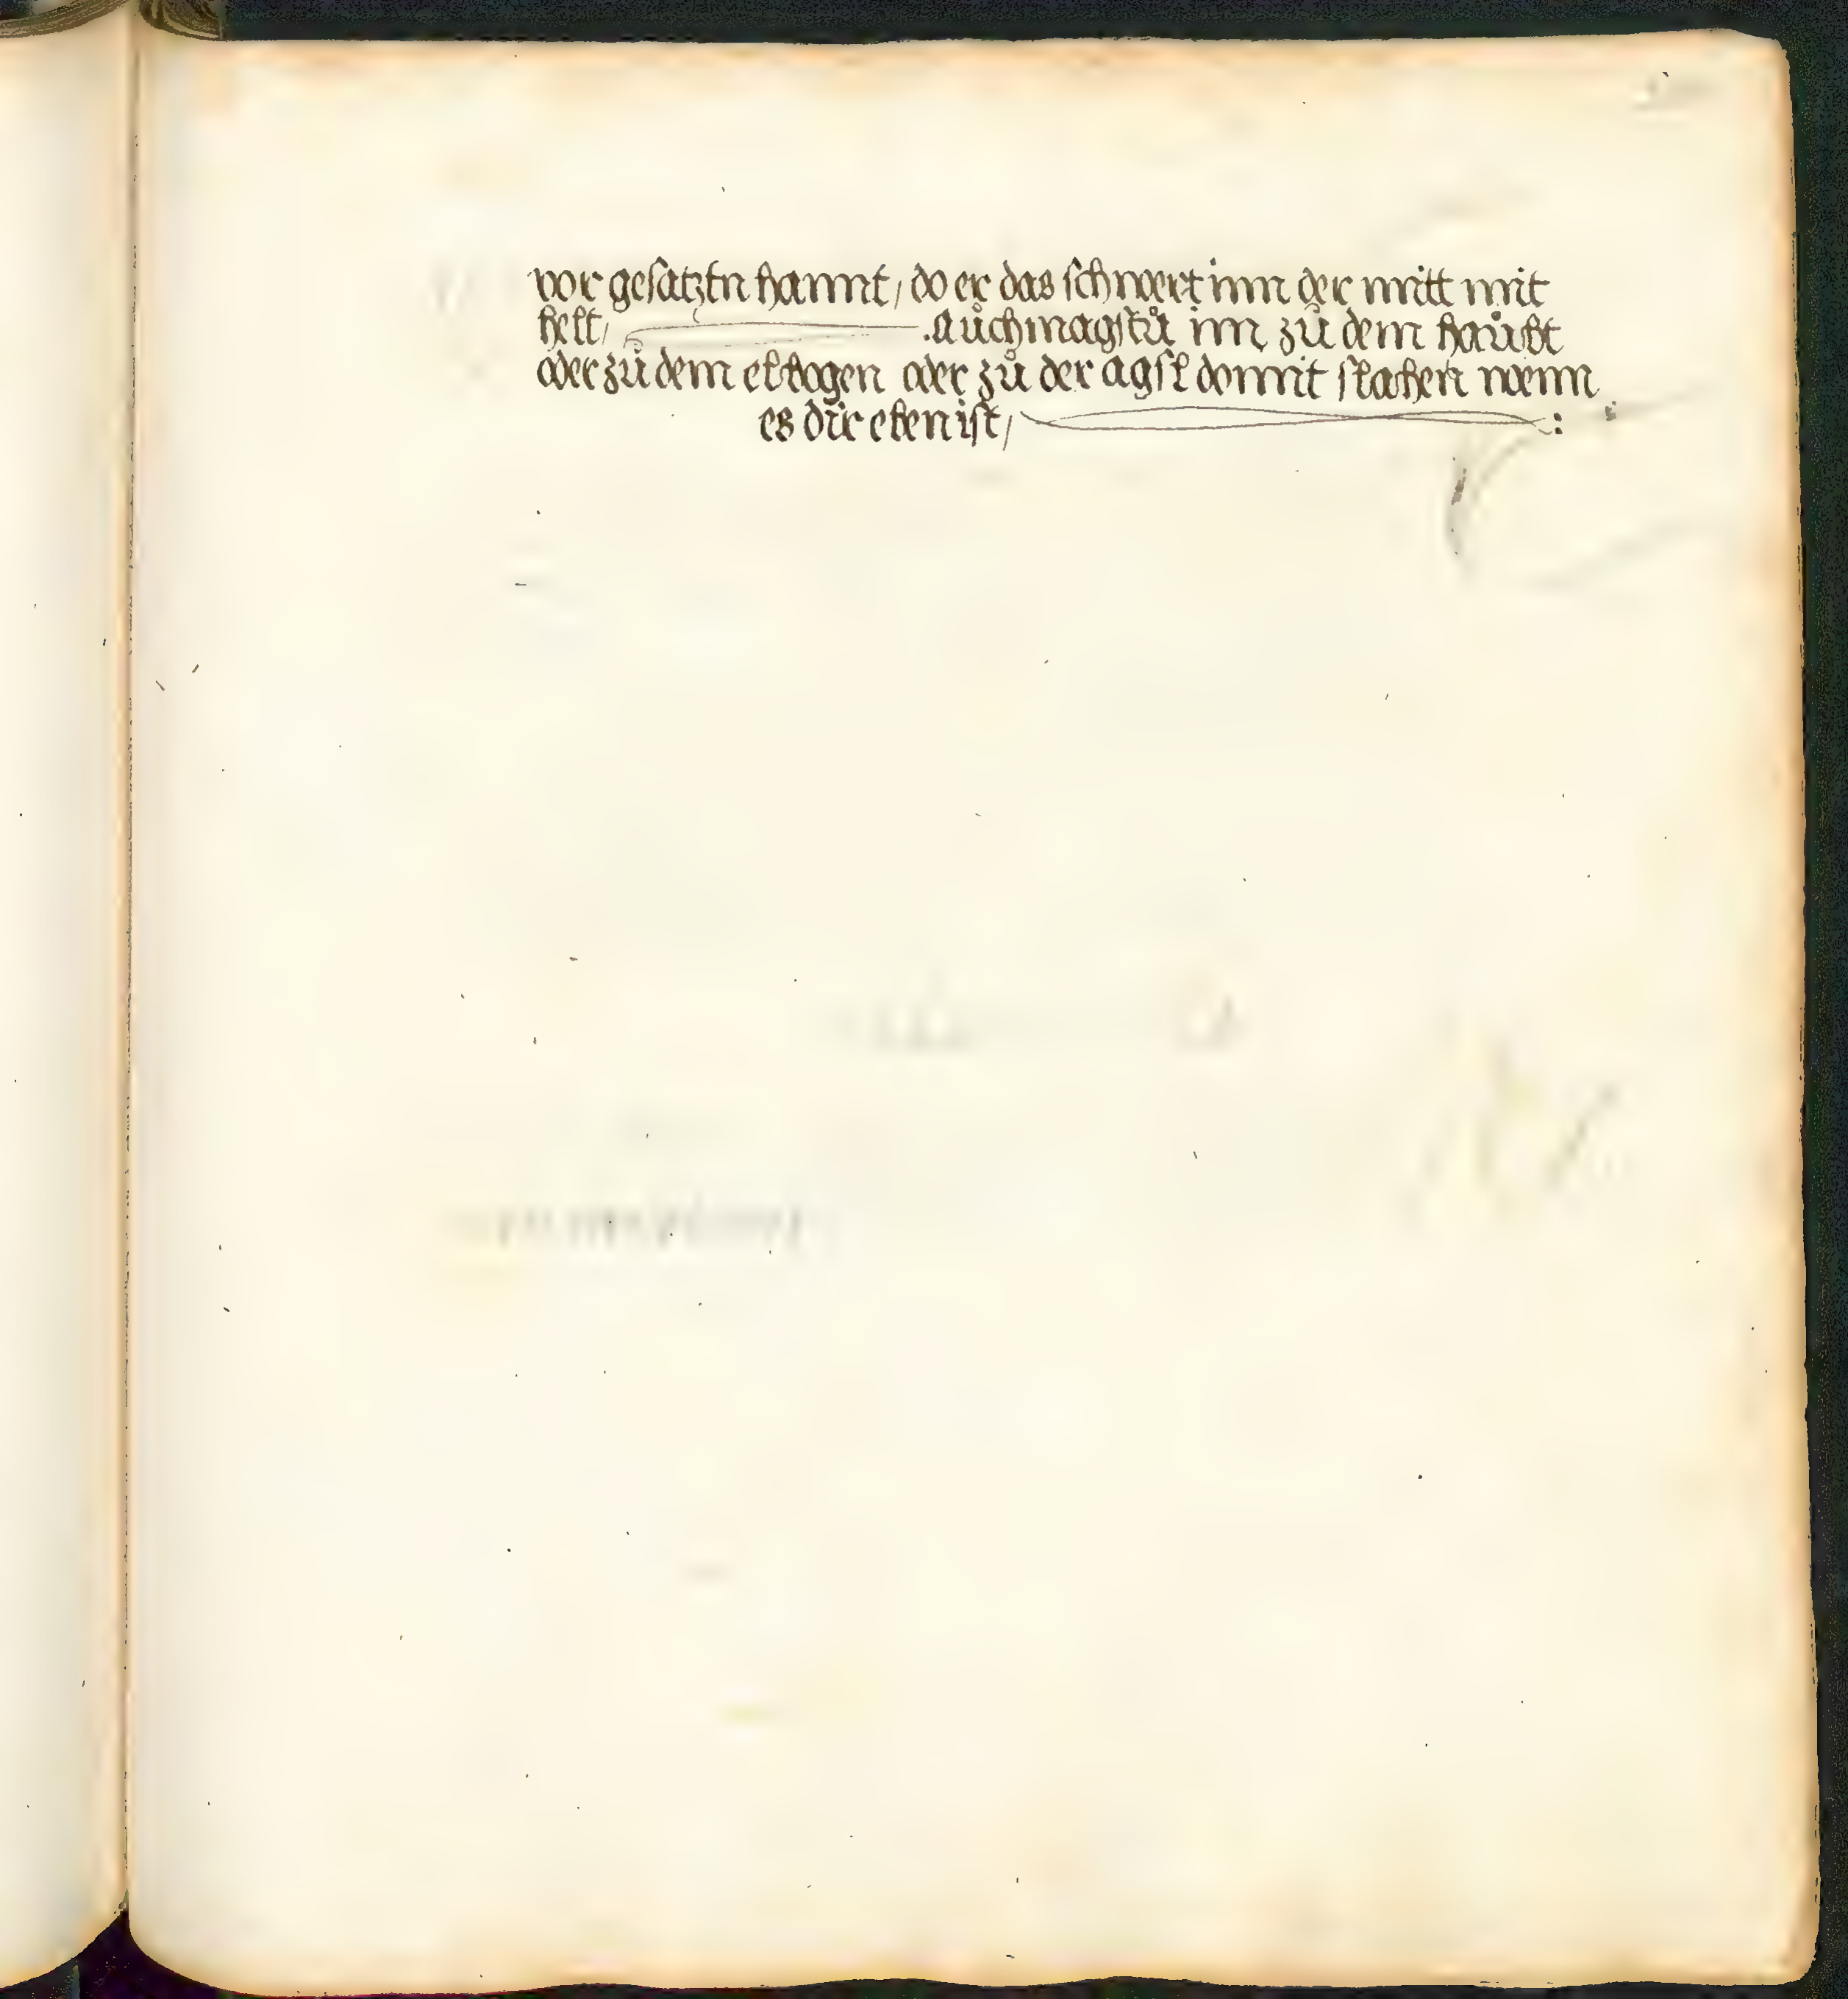 vor gesatztn hannt, do er das schwert inn der mitt mit
helt, .aůch magstů im zů dem haůbt
oder zů dem elbogen oder zů der agsl domit slahen wenn
es dir eben ist, :